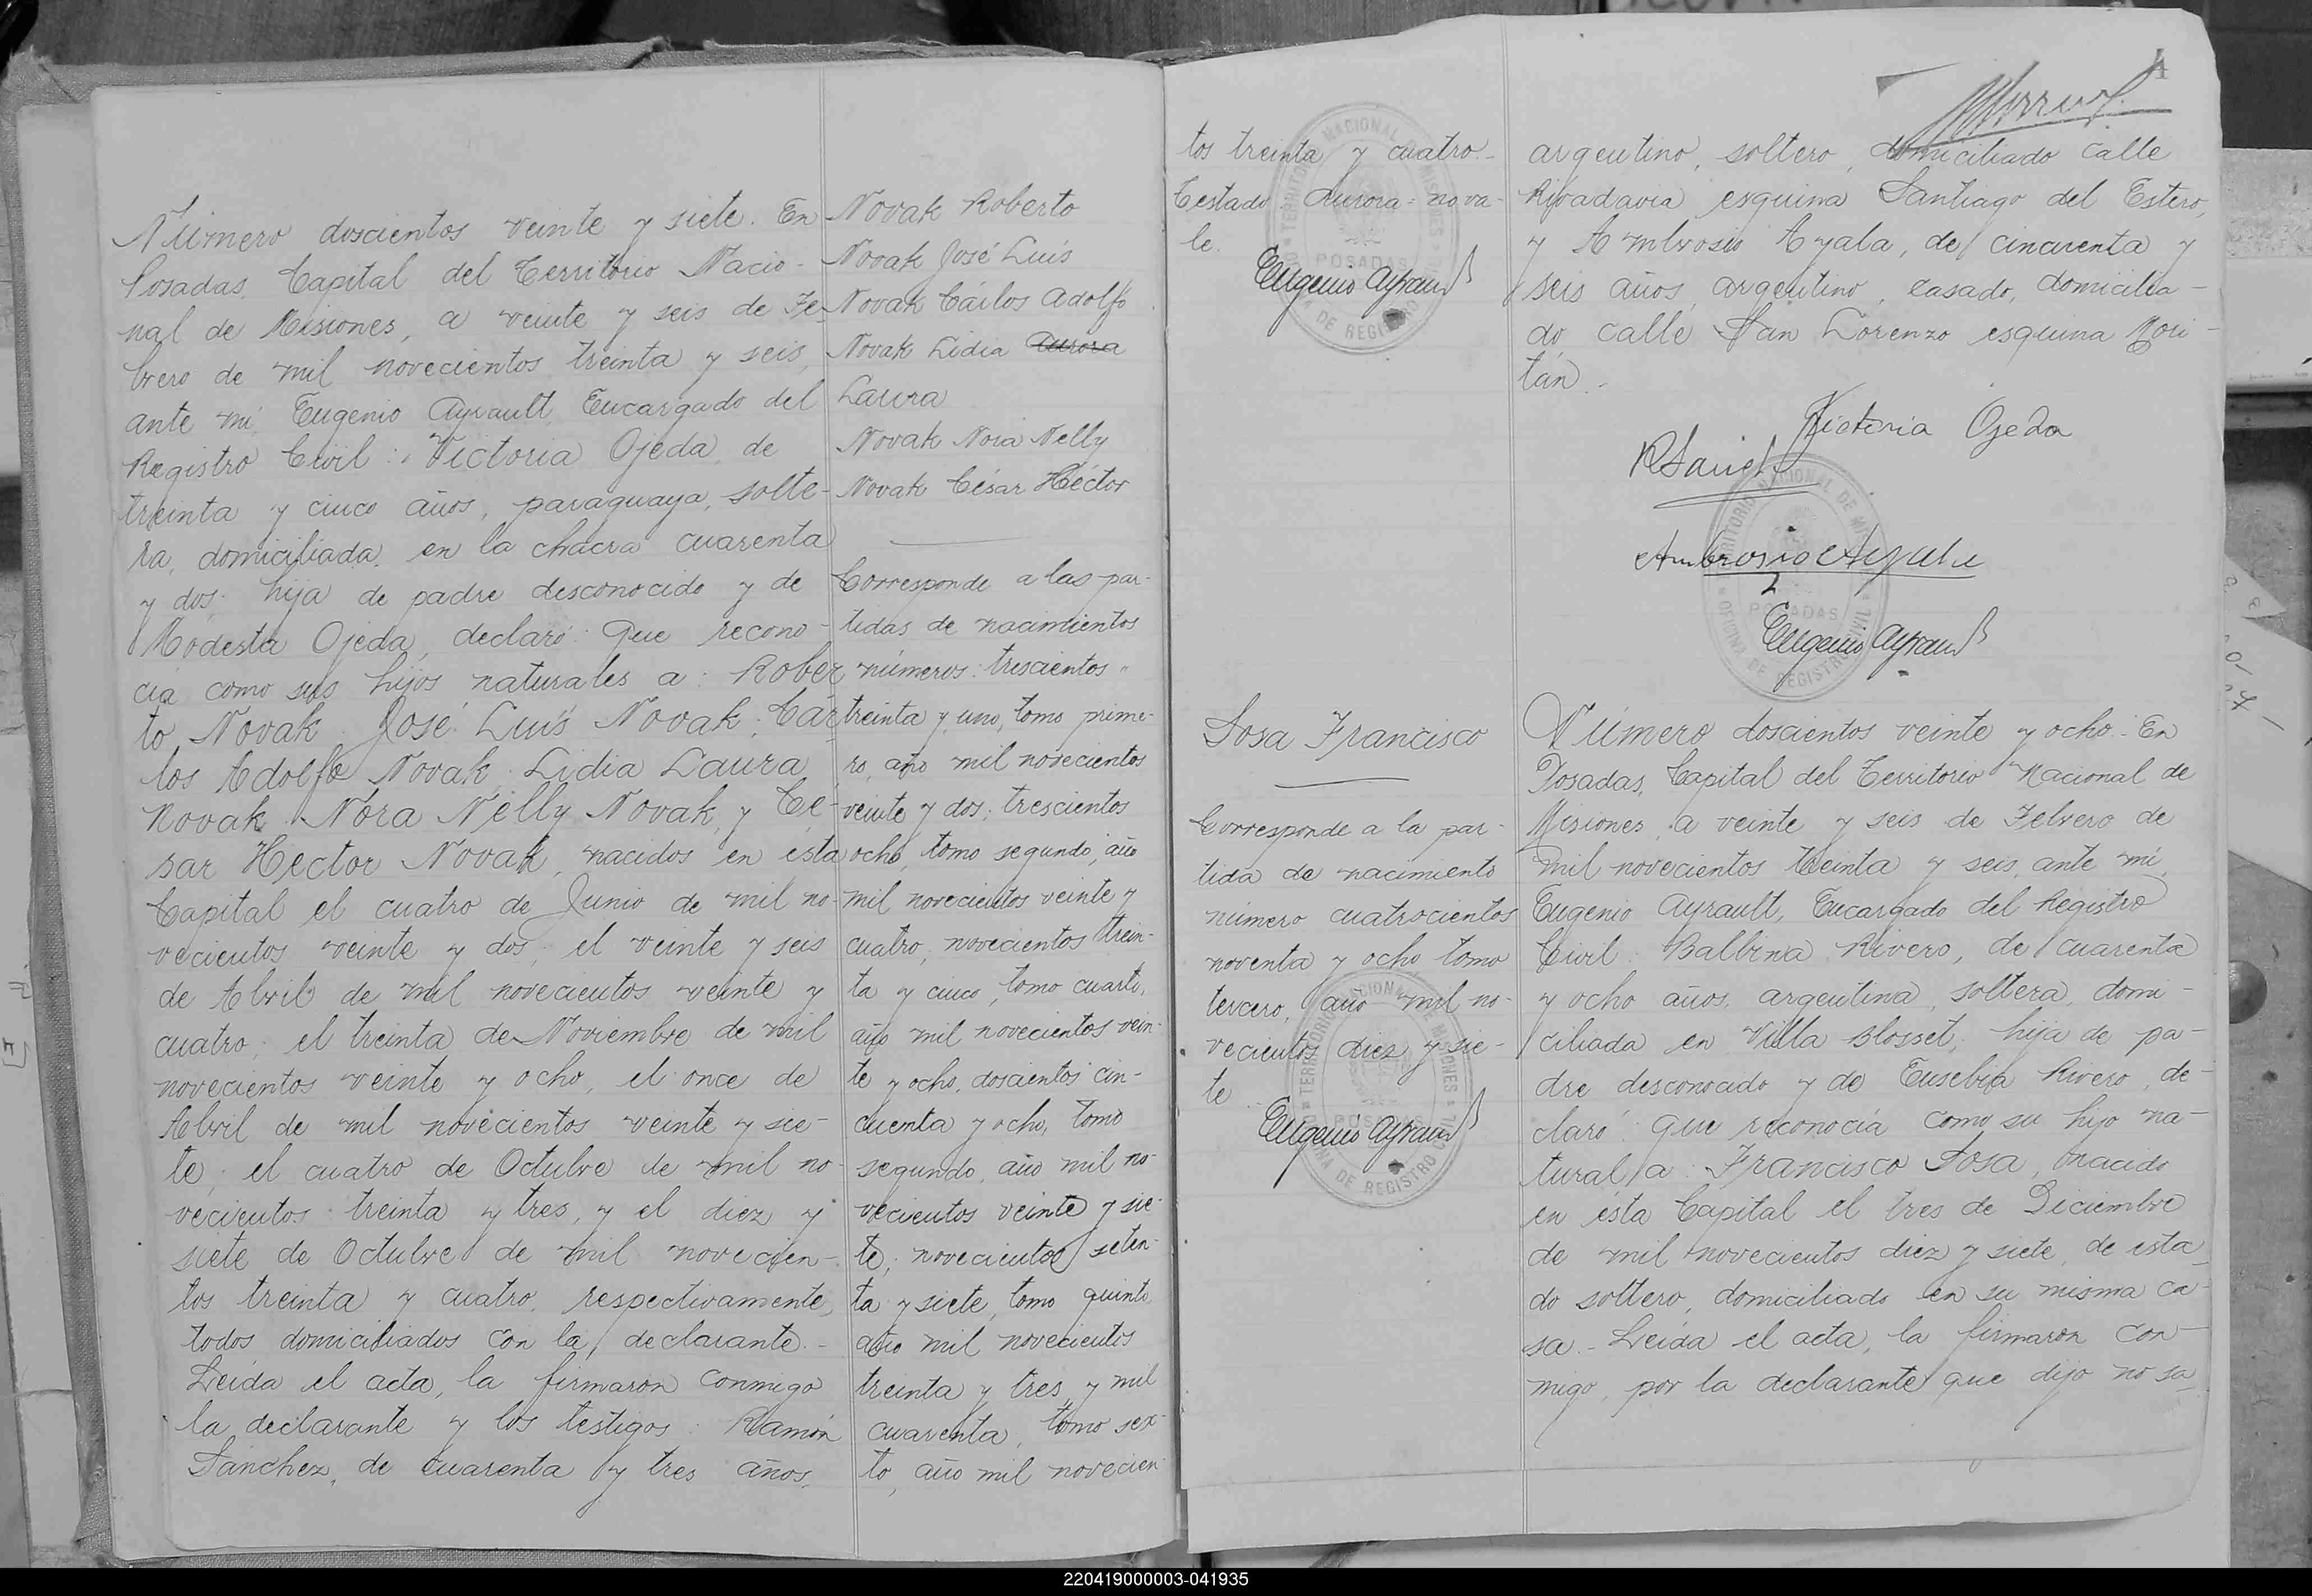 Número doscientos veinte y siete. En
Posadas, Capital del Territorio Nacio-
nal de Misiones, a veinte y seis de Fe-
brero de mil novecientos treinta y seis,
ante mí, Eugenio Ayrault, Encargado del
Registro Civil: Victoria Ojeda, de
treinta y cinco años, paraguaya, solte-
ra, domiciliada en la chacra cuarenta
y dos, hija de padre desconocido y de
Modesta Ojeda, declaró: Que recono-
cía como sus hijos naturales a: Rober
to Novak, José Luis Novak, Cár
los Adolfo Novak, Lidia Laura
Novak, Nóra Nélly Novak, y Cé-
sar Hector Novak, nacidos en esta
Capital el cuatro de Junio de mil no-
vecientos veinte y dos; el veinte y seis
de Abril de mil novecientos veinte y
cuatro; el treinta de Noviembre de mil
novecientos veinte y ocho, el once de
Abril de mil novecientos veinte y sie-
te; el cuatro de Octubre de mil no-
vecientos treinta y tres, y el diez y
siete de Octubre de mil novecien-
tos treinta y cuatro, respectivamente,
todos domiciliados con la declarante.-
Leída el acta, la firmaron conmigo
la declarante y los testigos: Ramón
Sánchez, de cuarenta y tres años,
Novak Roberto
Novak José Luis
Novak Cárlos Adolfo
Novak Lidia Aurora
Laura
Novak Nora Nelly
Novak César Héctor
Corresponde a las par-
tidas de nacimientos
números: trescientos
treinta y uno, tomo prime-
ro, año mil novecientos
veinte y dos; trescientos
ocho, tomo segundo, año
mil novecientos veinte y
cuatro, novecientos trein-
ta y cinco, tomo cuarto,
año mil novecientos vein-
te y ocho, doscientos cin-
cuenta y ocho, tomo
segundo, año mil no-
vecientos veinte y sie-
te; novecientos seten-
ta y siete, tomo quinto
año mil novecientos
treinta y tres, y mil
cuarenta, tomo sex-
to, año mil novecien
tos treinta y cuatro.-
Testado: Aurora=no va-
le.
Eugenio Ayrault
TERRITORIO NACIONAL DE MISIONES
POSADAS
OFICINA DE REGISTRO CIVIL
argentino, soltero, domiciliado calle
Rivadavia esquina Santiago del Estero,
y Ambrosio Ayala, de cincuenta y
seis años, argentino, casado, domicilia-
do calle San Lorenzo esquina Mori-
tán.
Victoria Ojeda
Ambrosio Ayala
TERRITORIO NACIONAL DE MISIONES
POSADAS
OFICINA DE REGISTRO CIVIL
Eugenio Ayrault
Sosa Francisco
Corresponde a la par-
tida de nacimiento
número cuatrocientos
noventa y ocho, tomo
tercero, año mil no-
vecientos diez y sie-
te.
Eugenio Ayrault
TERRITORIO NACIONAL DE MISIONES
POSADAS
OFICINA DE REGISTRO CIVIL
Número doscientos veinte y ocho. En
Posadas, Capital del Territorio Nacional de
Misiones, a veinte y seis de Febrero de
mil novecientos treinta y seis, ante mí,
Eugenio Ayrault, Encargado del Registro
Civil: Balbina Rivero, de cuarenta
y ocho años, argentina, soltera, domi-
ciliada en Villa Blosset, hija de pa-
dre desconocido y de Eusebia Rivero, de-
claró: Que reconocía como su hijo na-
tural a: Francisco Sosa, nacido
en ésta Capital el tres de Diciembre
de mil novecientos diez y siete, de esta
do soltero, domiciliado en su misma ca-
sa.- Leída el acta, la firmaron con-
migo, por la declarante que dijo no sa-
220419000003-041935